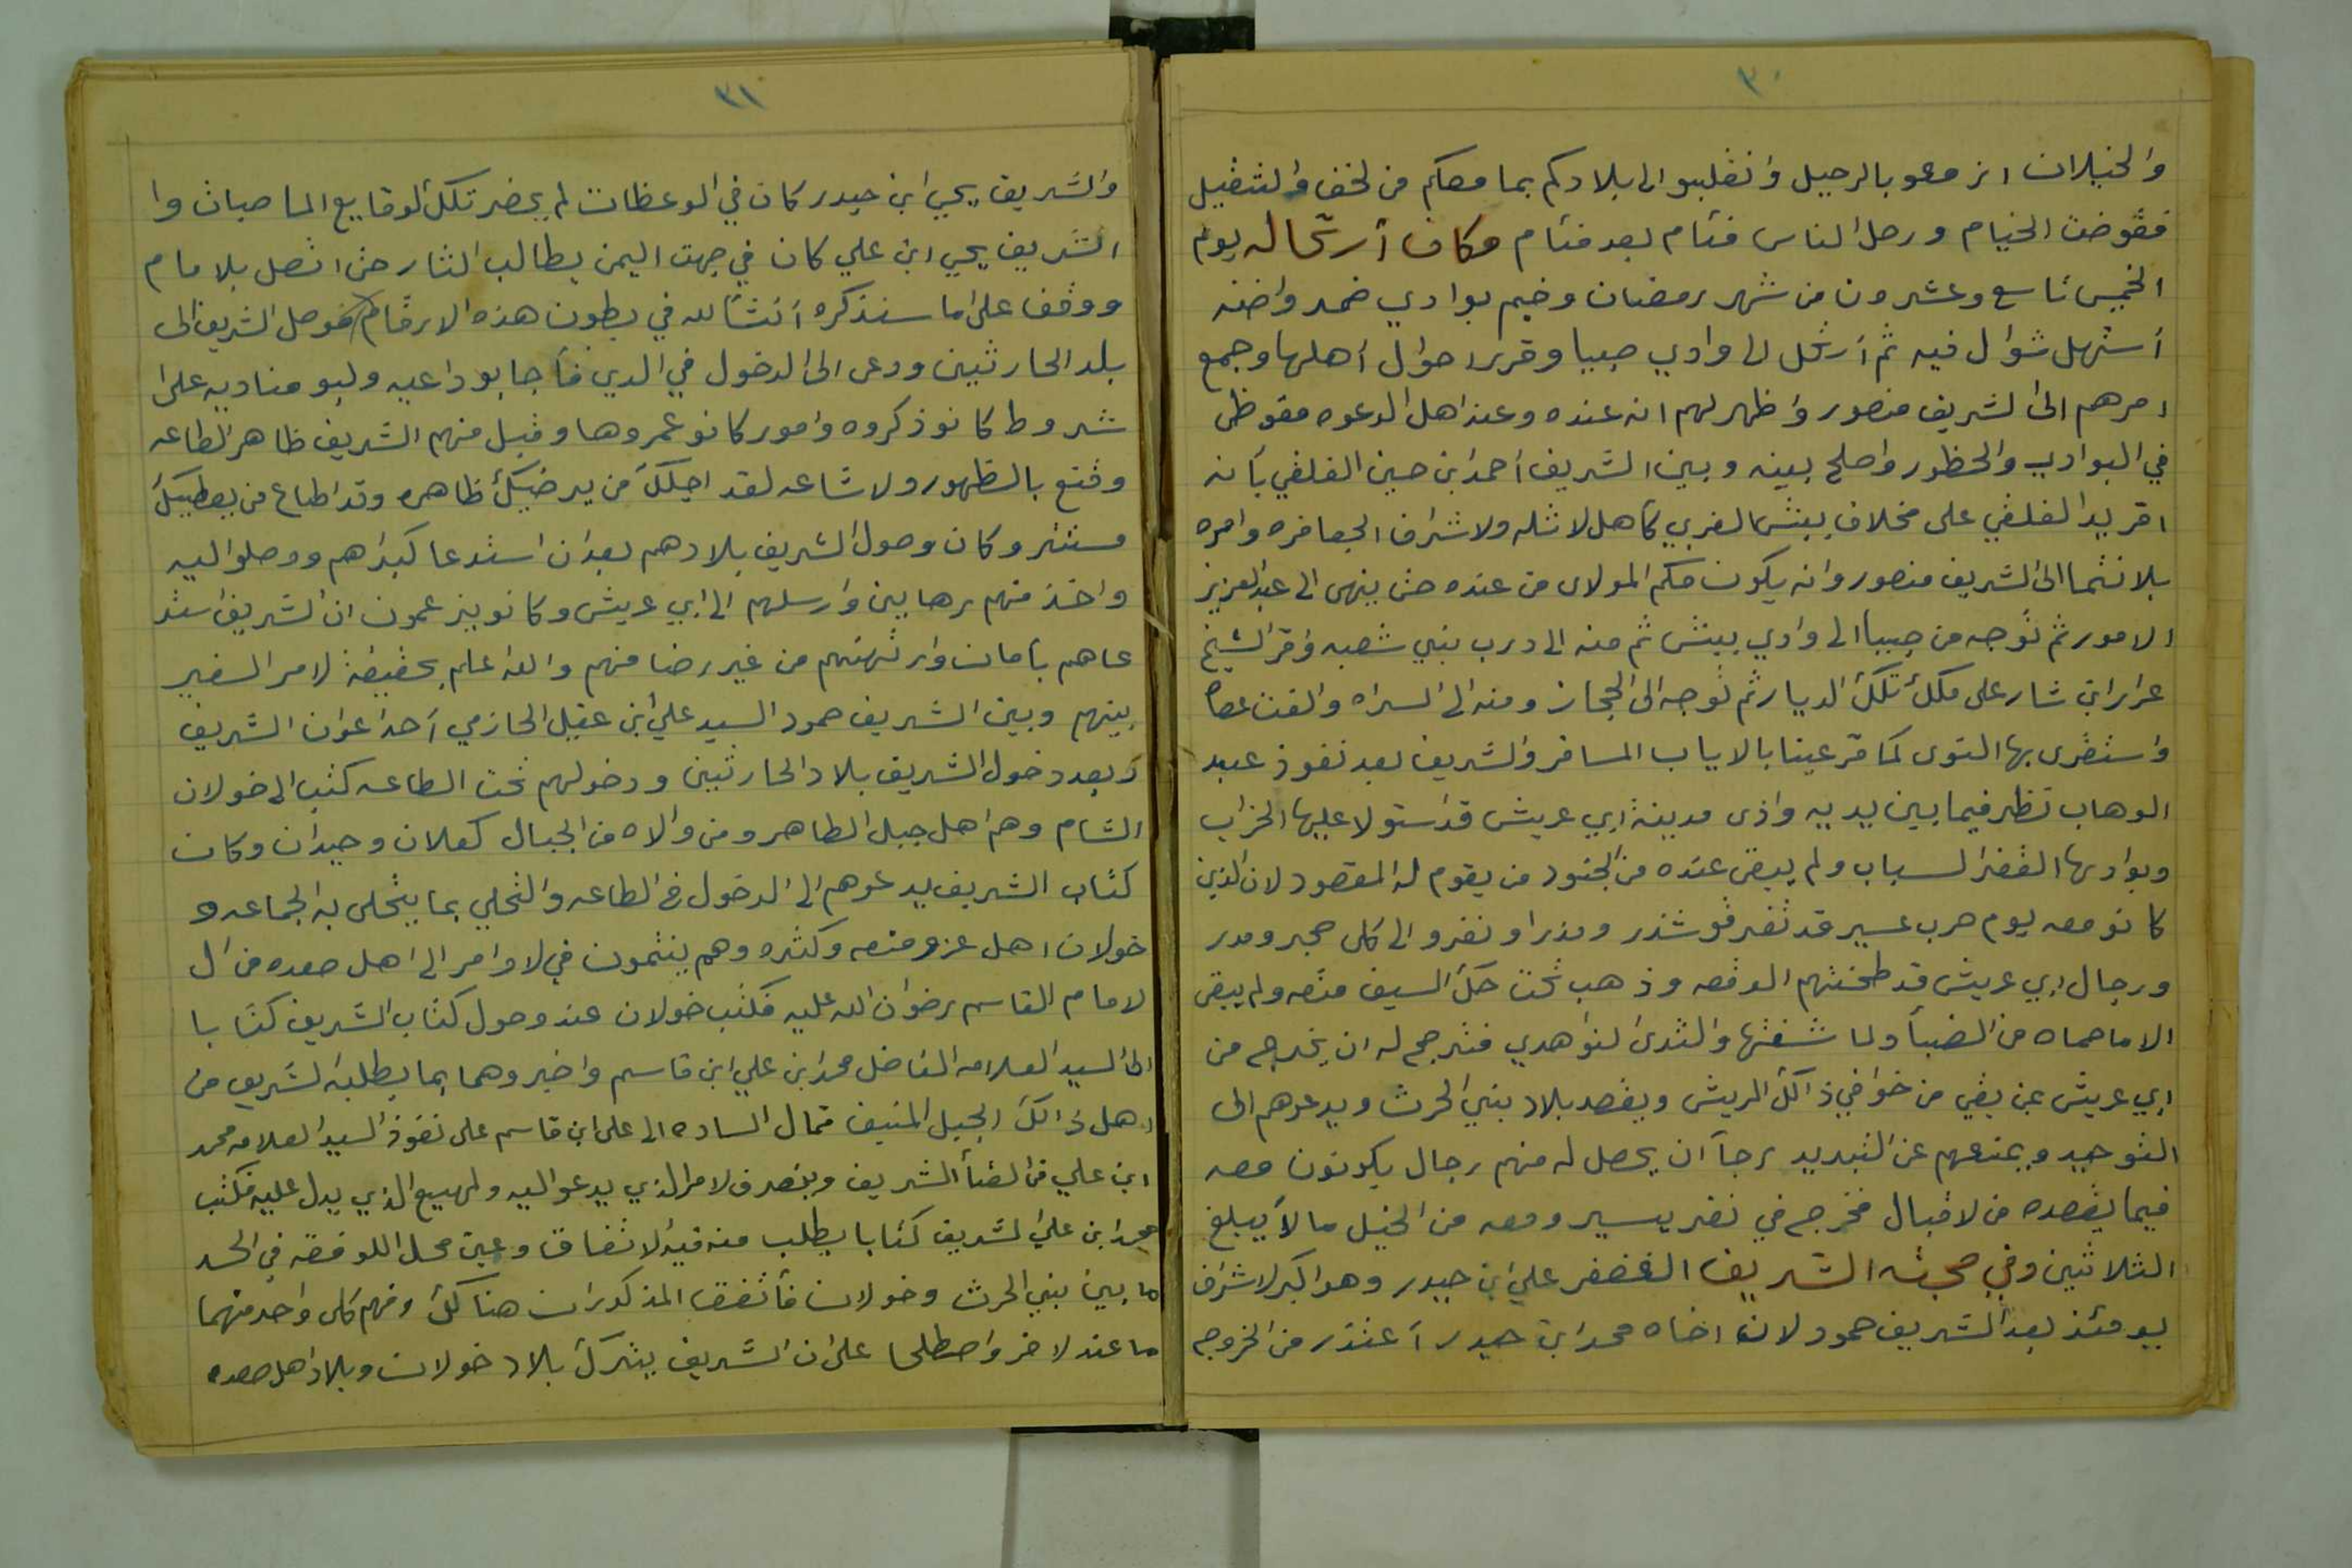 ٣٠
والخيلان ازمعو بالرحيل وانقلبو الى بلادكم بما معكم من لخف والتثقيل
فقوضت الخيام ورحل الناس فئام بعد فئام وكان أرتحاله يوم
الخميس تاسع وعشرون من شهر رمضان وخيم بوادي ضمد واضنه
أستهل شوال فيه ثم أرتحل الى وادي صبيا وقرر احوال أهلها وجمع
امرهم الى الشريف منصور واظهر لهم انه عنده وعند اهل الدعوه مقوظى
في البوادي والحظور واصلح بينه وبين الشريف أحمد ابن حسين الفلقي بأنه
اقر يد الفلقي على مخلاف بيش الغربي كأهل لاثله ولاشراف الجعافره وامره
بلانتما الى الشريف منصور وانه يكون مكم المولاى من عنده حتى ينهى الى عبد العزيز
الامور ثم توجه من صبيا الى وادي بيش ثم منه الى درب بني شعبه واقر الشيخ
عرار ابن شار على ملك تلك الديار ثم توجه الى الحجاز ومنه الى السراه والقت عصا
واستقرى بها النوى كما قر عينا بالاياب المسافر والشريف بعد نفوذ عبد
الوهاب نظر فيما بين يديه واذى مدينة ابي عريش قد استولا عليها الخراب
وبوادىها القفر السباب ولم يبقى عنده من الجنود من يقوم له المقصود لان الذين
كانو معه يوم حرب عسير قد تفرقو شذر ومذر او نفرو الى كل حجر ومدر
ورجال ابي عريش قد طحنتهم الوقعه وذهب تحت حك السيف منعه ولم يبقى
الاماحماه من الضبأ ولما شفتها والثدى لنواهدي فترجح له ان يخرج من
ابي عريش عن بقي من خوافي ذالك الريش ويقصد بلاد بني الحرث ويدعوهم الى
التوحيد ويمنعهم عن التبديد رجاآن يحصل له منهم رجال يكونون معه
فيما يقصده من لاقبال فخرج في نفر يسير ومعه من الخيل مالآيبلغ
الثلاثين وفي صحبته الشريف الغضفر علي ابن حيدر وهو اكبر لاشراف
يومئذ بعد الشريف حمود لان اخاه محمد ابن حيدر أعتذر من الخروج
٣١
والشريف يحيي ابن حيدر كان في الوعظات لم يحضر تلك لوقايع الماصبات وا
الشريف يحيي ابن علي كان في جهت اليمن يطالب الثار حتى اتصل بلامام
ووقف على ماسنذكره أنشألله في بطون هذه الارقام فوصل الشريف الى
بلد الحارثيين ودعى الى الدخول في الدين فأجابو داعيه ولبو مناديه على
شروط كانو ذكروه وامور كانو عمروها وقبل منهم الشريف ظاهر الطاعه
وقنع بالظهور ولاشاعه لقد اجلك من يرضيك ظاهره وقد اطاع من يعطيك
مستتر وكان وصول الشريف بلادهم بعد ان استدعا كبراهم ووصلو اليه
واخذ منهم رهابين وارسلهم الى ابي عريش وكانو يزعمون ان الشريف استد
عاهم بأمان وارتهنهم من غير رضا منهم والله اعلم بحقيقة لامر السفير
بينهم وبين الشريف حمود السيد علي ابن عقيل الحازمي أحد اعوان الشريف
وبعد دخول الشريف بلاد الحارثيين ودخولهم تحت الطاعه كتب الى خولان
الشام وهم اهل جبل الطاهر ومن والاه من الجبال كعلان وحيدان وكان
كتاب الشريف يدعوهم الى الدخول في الطاعه والتحلي بما يتحلى به الجماعه و
خولان اهل عز ومنعه وكثره وهم ينتمون في لاوامر الى اهل صعده من ال
لامام القاسم رضوان الله عليه فكتب خولان عند وصول كتاب الشريف كتابا
الى السيد العلامه الفاضل محمد ابن علي ابن قاسم واخبروهما بما يطلبه لشريف من
اهل ذالك الجبل المنيف فمال الساده الى على ابن قاسم على نفوذ السيد العلامه محمد
ابن علي من لقأ الشريف وينصرف لامر الذي يدعو اليه ولمهيع الذي يدل عليه فكتب
محمد ابن علي لشريف كتابا يطلب منه فيه لاتفاق وعين محل اللوقفه في الحد
ما بين بني الحرث وخولان فأتفق المذكوران هناك وفهم كل واحد منهما
ما عند لاخر واصطلحا على ان الشريف يترك بلاد خولان وبلاد اهل صعده